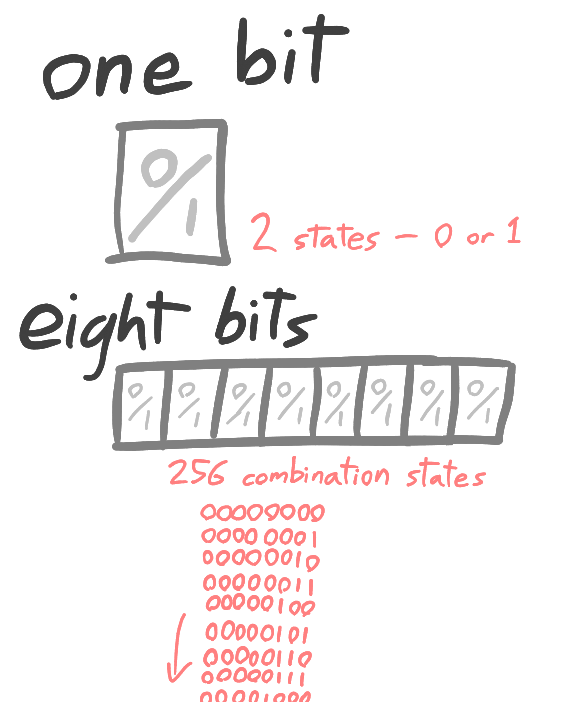 one bit
0/1
2 states – 0 or 1
eight bits
0/1 0/1 0/1 0/1 0/1 0/1 0/1 0/1
256 combination states
00000000
00000001
00000010
00000011
00000100
00000101
00000110
00000111
00001000